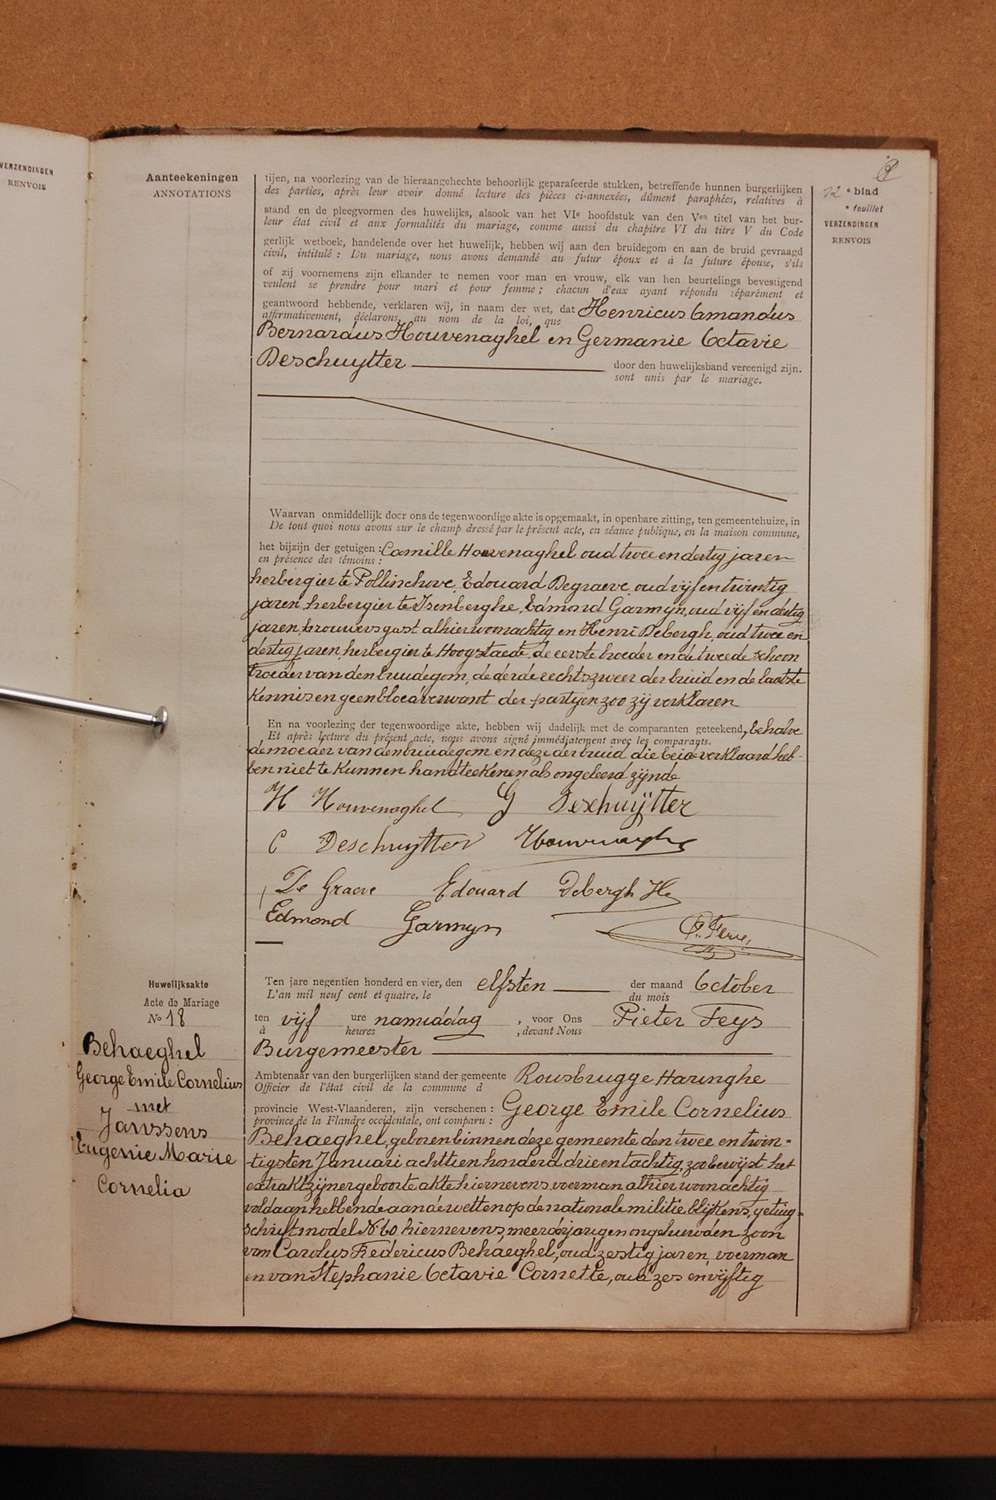 VERZENDINGEN
RENVOIS
Aanteekeningen
ANNOTATIONS
12 e blad
e feuillet
VERZENDINGEN
RENVOIS
tijen, na voorlezing van de hieraangehechte behoorlijk geparafeerde stukken, betreffende hunnen burgerlijken
des parties, après leur avoir donné lecture des pièces ci-annexées, dûment paraphées, relatives à
stand en de pleegvormen des huwelijks, alsook van het VIe hoofdstuk van den Ven titel van het bur-
leur état civil et aux formalités du mariage, comme aussi du chapitre VI du titre V du Code
gerlijk wetboek, handelende over het huwelijk, hebben wij aan den bruidegom en aan de bruid gevraagd
civil, intitulé : Du mariage, nous avons demandé au futur époux et à la future épouse, s'ils
of zij voornemens zijn elkander te nemen voor man en vrouw, elk van hen beurtelings bevestigend
veulent se prendre pour mari et pour femme ; chacun d'eux ayant répondu séparément et
geantwoord hebbende, verklaren wij, in naam der wet, dat Henricus Amandus
affirmativement, déclarons, au nom de la loi, que
Bernardus Houvenaghel en Germanie Octavie
Deschuytter door den huwelijksband vereenigd zijn.
sont unis par le mariage.
Waarvan onmiddellijk door ons de tegenwoordige akte is opgemaakt, in openbare zitting, ten gemeentehuize, in
De tout quoi nous avons sur le champ dressé par le présent acte, en séance publique, en la maison commune,
het bijzijn der getuigen : Camille Houvenaghel oud twee en dertig jaren
en présence des témoins :
herbergier te Pollinchove, Edouard Degraeve, oud vijf en twintig
jaren, herbergier te Isenberghe, Edmond Garmyn, oud vijf en dertig
jaren, brouwersgast alhier woonachtig en Henri Debergh, oud twee en
dertig jaren, herbergier te Hoogstaede, de eerste broeder en de tweede schoon
broeder van den bruidegom, de derde rechtszweer der bruid en de laatste
kennis en geen bloedverwant der partijen zoo zij verklaren
En na voorlezing der tegenwoordige akte, hebben wij dadelijk met de comparanten geteekend, behalve
Et après lecture du présent acte, nous avons signé immédiatement avec les comparants.
de moeder van den bruidegom en deze der bruid die beide verklaard heb-
ben niet te kunnen handteekenen als ongeleerd zijnde
H Houvenaghel G Deschuytter
C Deschuytter Houvenaghel
De Graeve Edouard Debergh He
Edmond Garmyn P. Feys
Huwelijksakte
Acte de Mariage
No 18
Behaeghel
George Emile Cornelius
met
Janssens
Eugenie Marie
Cornelia
Ten jare negentien honderd en vier, den elfsten der maand October
L'an mil neuf cent et quatre, le du mois
ten vijf ure namiddag, voor Ons Pieter Feys
à heures , devant Nous
Burgemeester
Ambtenaar van den burgerlijken stand der gemeente Rousbrugge Haringhe
Officier de l'état civil de la commune d
provincie West-Vlaanderen, zijn verschenen : George Emile Cornelius
province de la Flandre occidentale, ont comparu :
Behaeghel, geboren binnen deze gemeente den twee en twin-
tigsten Januari achttien honderd drie en tachtig, zoo bewijst het
extrakt zijner geboorte akte hiernevens, voerman alhier woonachtig
voldaan hebbende aan de wetten op de nationale militie, blijkens getuig-
schrift model No 60 hiernevens, meerderjarigen ongehuwden zoon
van Carolus Fredericus Behaeghel, oud zestig jaren, voerman
en van Stephanie Octavie Cornette, oud zes en vijftig